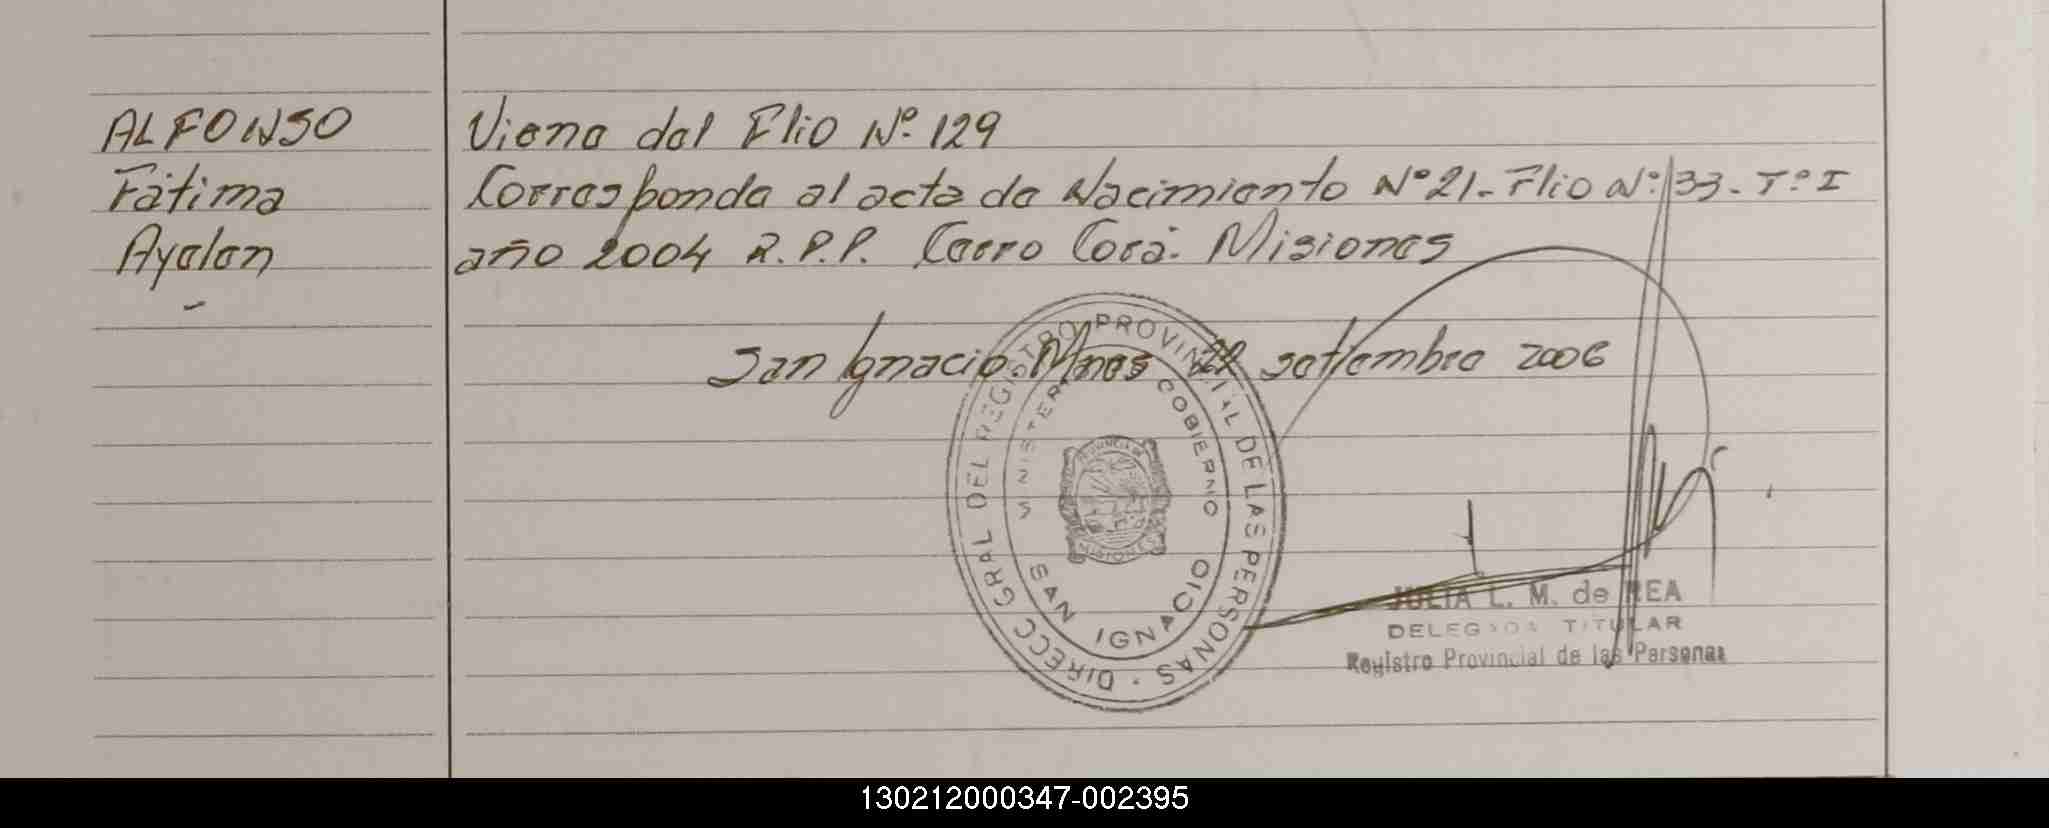 ALFONSO
Fátima
Ayelen
Viene del Flio Nº 129
Corresponde al acta de Nacimiento Nº 21- Flio Nº 33- Tº I
año 2004 R.P.P. Cerro Corá. Misiones
San Ignacio Mnes 22 setiembre 2006
DIRECC GRAL DEL REGISTRO PROVINCIAL DE LAS PERSONAS
MINISTER GOBIERNO
PROVINCIA DE
MISIONES
SAN IGNACIO
JULIA L. M. de REA
DELEGADA TITULAR
Registro Provincial de las Personas
130212000347-002395